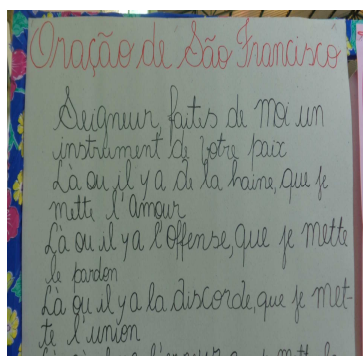 Oração de São Francisco
Seigneur, faites de moi un
instrument de votre paix
Là ou il y a de la haine, que je
mette l'amour
Là ou il y a l'offense, que je mette
le pardon
Là ou il y a la discorde, que je met-
te l'union